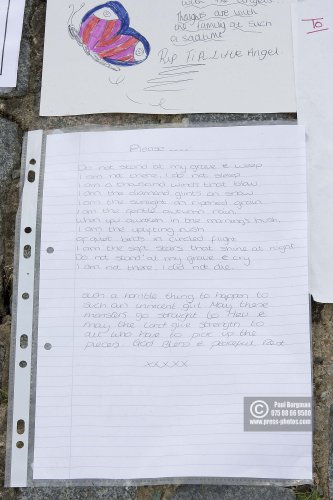 with the angels
Thoughts are with
the family at such
a sadtime
R.I.P TIA Little Angel.
To
Please ....
Do not stand at my grave & weep
I am not there, I do not sleep.
I am a thousand winds that blow
I am the diamond glints on snow
I am the sunlight on ripened grain
I am the gentle autumn rain.
When you awaken in the morning's hush,
I am the uplifting rush
of quiet birds in circled flight
I am the soft stars that shine at night.
Do not stand at my grave & cry
I am not there, I did not die.
such a horrible thing to happen to
such an innocent girl. May these
monsters go straight to Hell &
may the Lord give strength to
all who have to pick up the
pieces. God Bless & peaceful Rest
xxxxx
© Paul Bergman
075 88 66 9580
www.press-photos.com